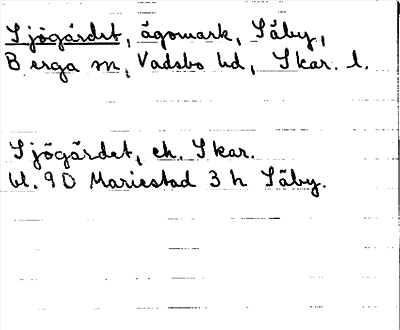 Sjögärdet, ägomark, Säby,
Berga sn, Vadsbo hd, Skar. l.
Sjögärdet, ek. Skar.
bl. 9D Mariestad 3 h Säby.